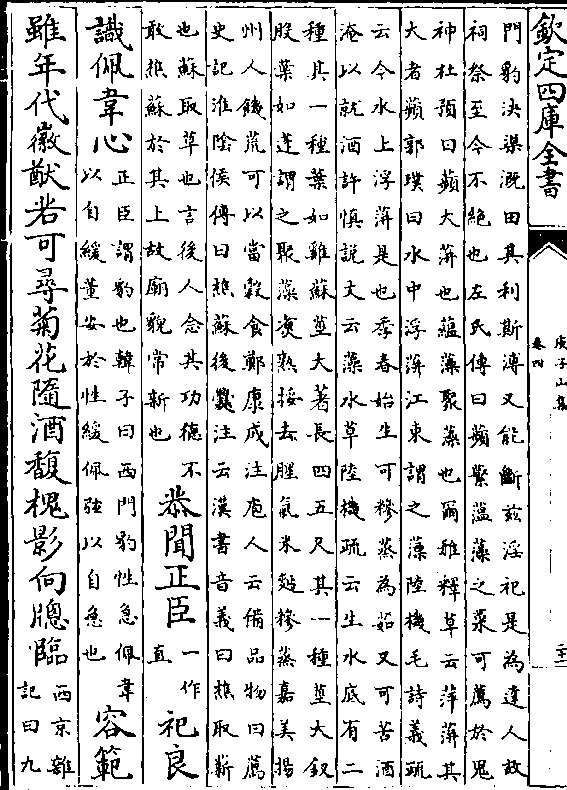 欽定四庫全書
庾子山集
卷四
門豹決渠溉田其利斯溥又能斷兹淫祀是為達人故
祠祭至今不絶也左氏傳曰蘋蘩薀藻之菜可薦於鬼
神杜預曰蘋大蓱也蘊藻聚藻也爾雅釋草云萍蓱其
大者蘋郭璞曰水中浮蓱江東謂之藻陸機毛詩義疏
云今水上浮蓱是也季春始生可糝蒸為茹又可苦酒
淹以就酒許慎說文云藻水草陸機疏云生水底有二
種其一種葉如雞蘇莖大著長四五尺其一種莖大釵
股葉如蓬謂之聚藻煑熟挼去腥氣米麪糝蒸嘉美揚
州人饑荒可以當穀食鄭康成注庖人云備品物曰薦
史記淮陰侯傳曰樵蘇後爨注云漢書音義曰樵取薪
也蘇取草也言後人念其功徳不
敢樵蘇於其上故廟貌常新也
恭聞正臣
一作
直
祀良
識佩韋心
正臣謂豹也韓子曰西門豹性急佩韋
以自緩董安於性緩佩弦以自急也
容範
雖年代徽猷若可尋菊花隨酒馥槐影向牕臨
西京雜
記曰九